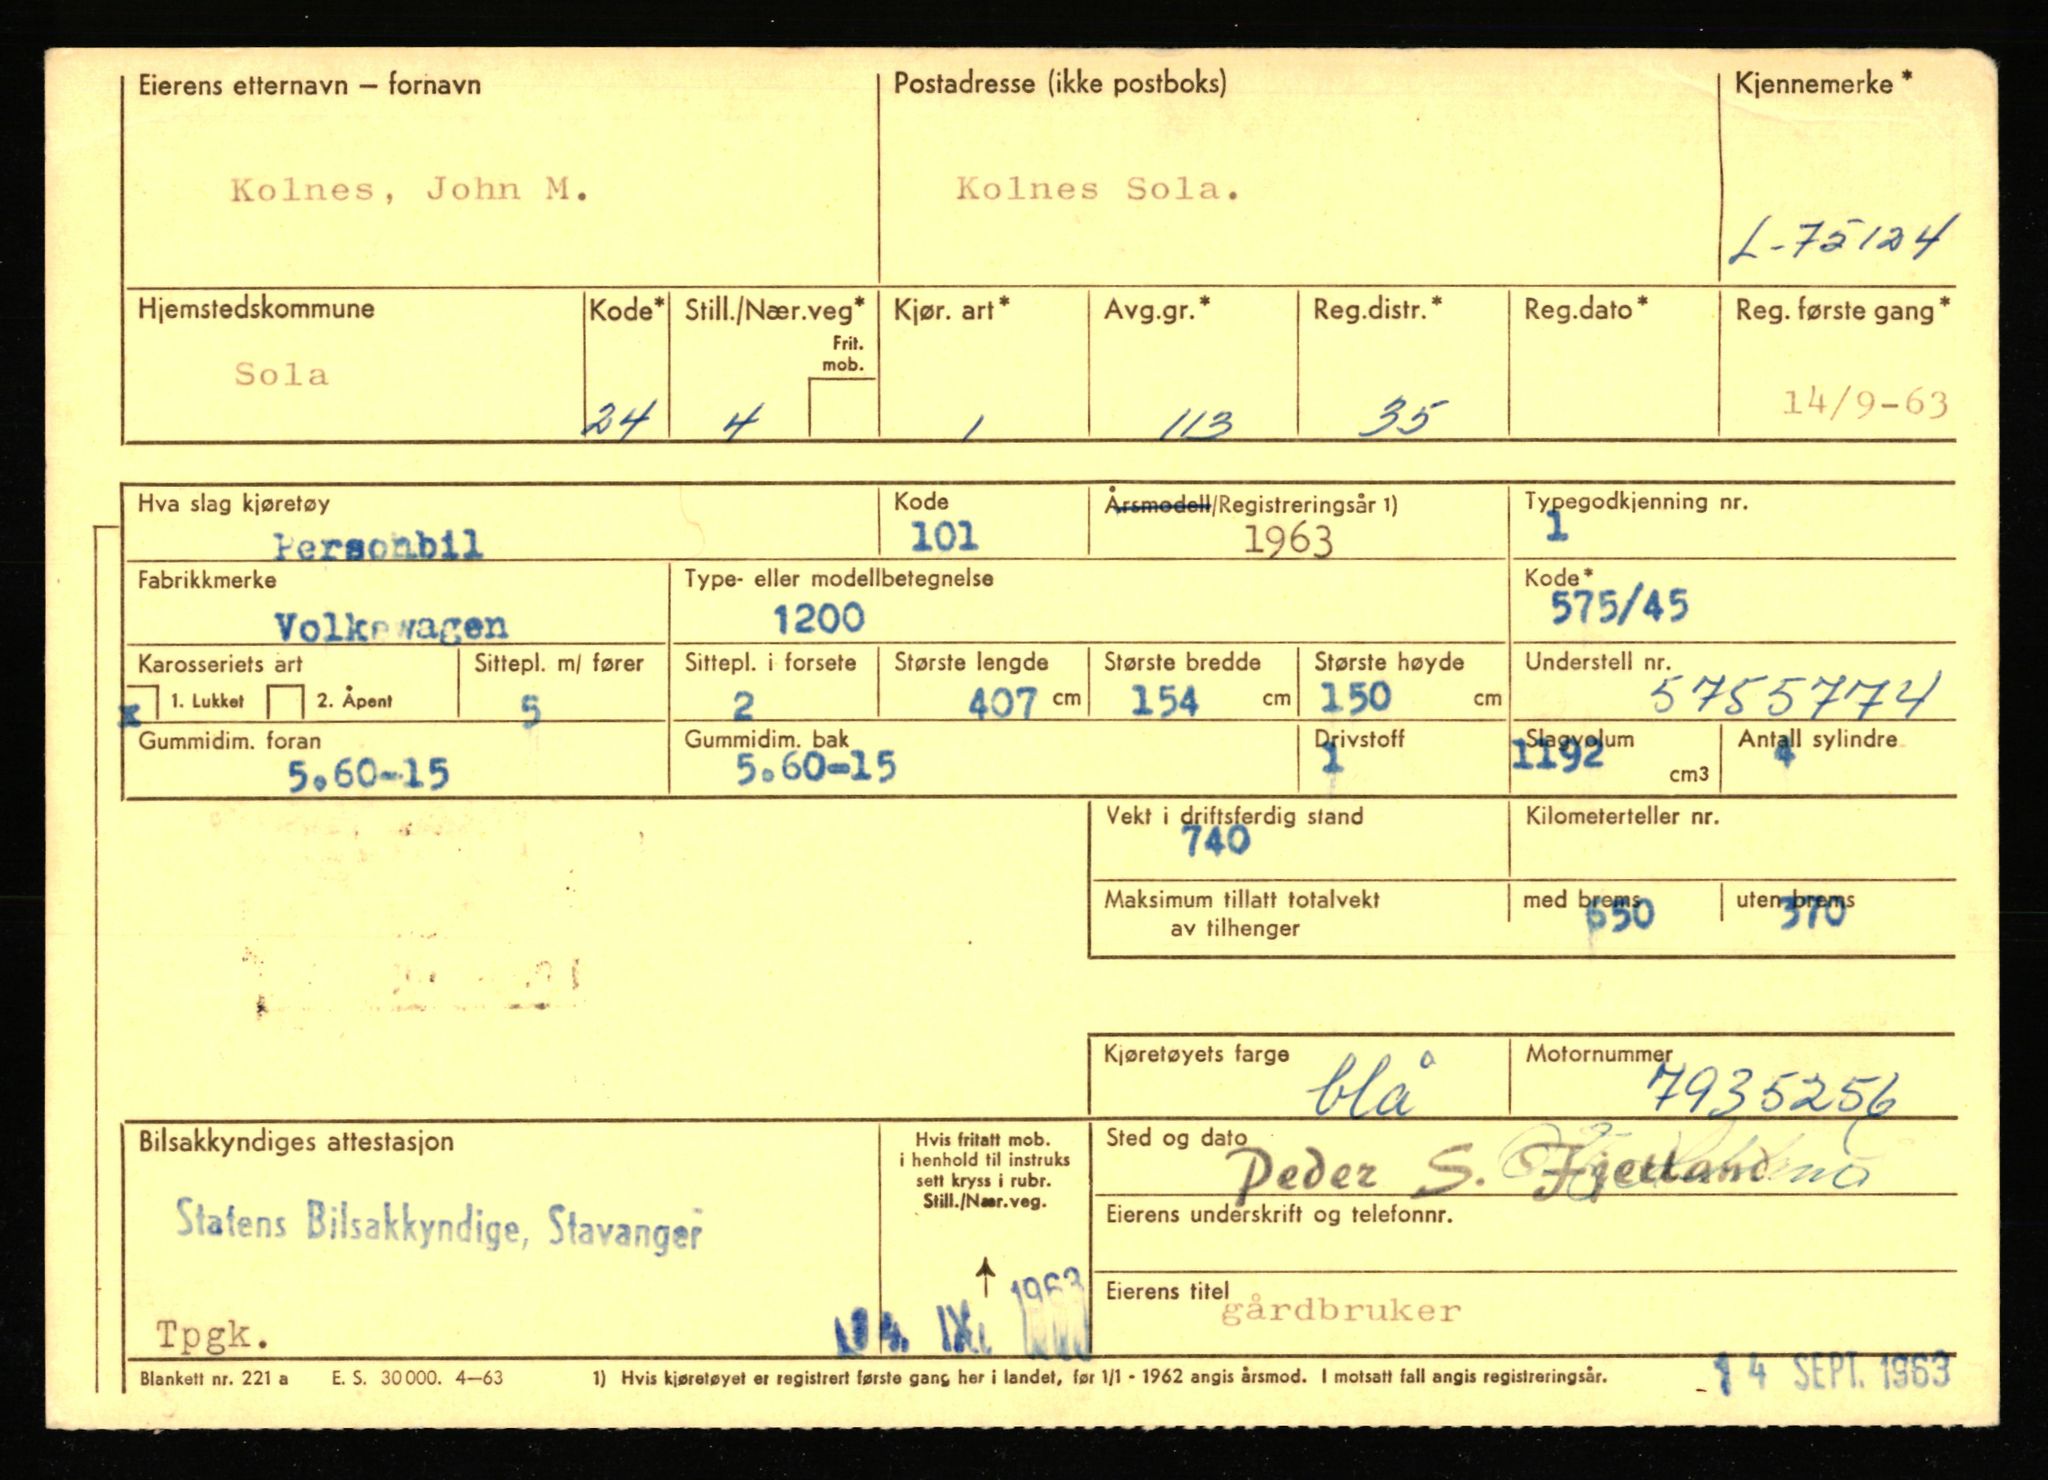 Eierens etternavn – fornavn
Postadresse (ikke postboks)
Kjennemerke*
Kolnes, John M.
Kolnes Sola.
L-75124
Hjemstedskommune
Kode*
Still./Nær.veg*
Frit. mob.
Kjør. art*
Avg.gr.*
Reg.distr.*
Reg.dato*
Reg. første gang*
Sola
24
4
1
113
35
14/9-63
Hva slag kjøretøy
Kode
Årsmodell/Registreringsår 1)
Typegodkjenning nr.
Personbil
101
1963
1
Fabrikkmerke
Type- eller modellbetegnelse
Kode*
Volkswagen
1200
575/45
Karosseriets art
Sittepl. m/ fører
Sittepl. i forsete
Største lengde
Største bredde
Største høyde
Understell nr.
x 1. Lukket 2. Åpent
5
2
407 cm
154 cm
150 cm
5755774
Gummidim. foran
Gummidim. bak
Drivstoff
Slagvolum
Antall sylindre
5.60-15
5.60-15
1
1192 cm3
4
Vekt i driftsferdig stand
Kilometerteller nr.
740
Maksimum tillatt totalvekt
av tilhenger
med brems
650
uten brems
370
Kjøretøyets farge
blå
Motornummer
7935256
Bilsakkyndiges attestasjon
Hvis fritatt mob.
i henhold til instruks
sett kryss i rubr.
Still./Nær.veg.
Sted og dato
Peder S. Fjetland
Statens Bilsakkyndige, Stavanger
Eierens underskrift og telefonnr.
Eierens titel
gårdbruker
Tpgk.
IX. 1963
Blankett nr. 221 a E. S. 30 000. 4–63
1) Hvis kjøretøyet er registrert første gang her i landet, før 1/1 - 1962 angis årsmod. I motsatt fall angis registreringsår.
14 SEPT. 1963